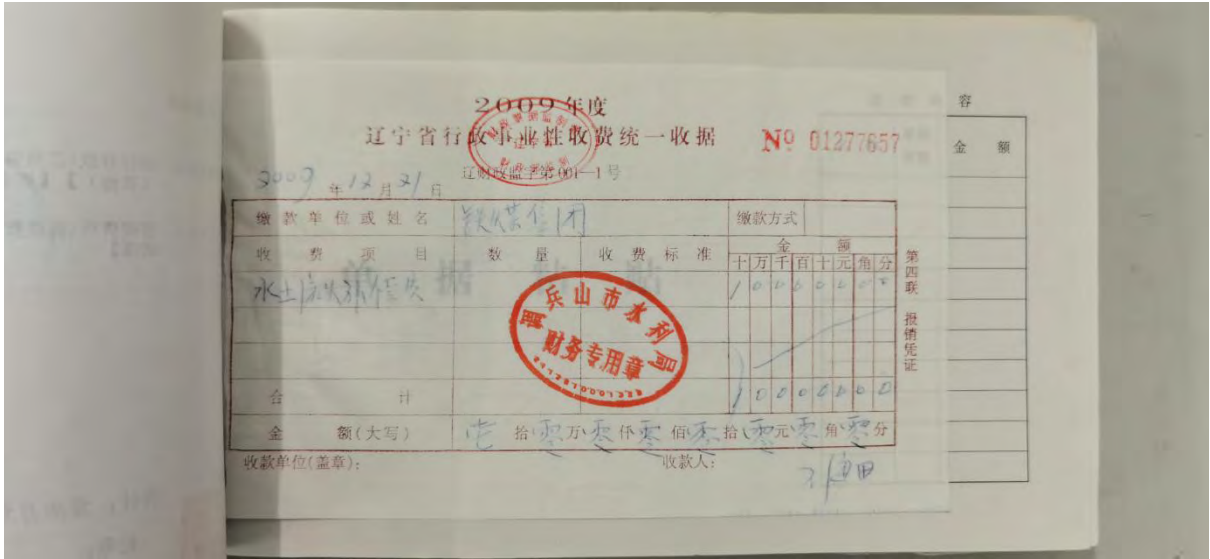 2009年度
辽宁省行政事业性收费统一收据
№ 01277657
辽财政监字第001—1号
2009年12月21日
缴款单位或姓名 铁煤集团 缴款方式
收费项目 数量 收费标准 金额
十万千百十元角分
水土流失 1 0 0 0 0 0 0 0
合计 1 0 0 0 0 0 0 0
金额(大写) 壹拾零万零仟零佰零拾零元零角零分
收款单位(盖章): 收款人:
第四联 报销凭证
调兵山市水利局
财务专用章
容
金额